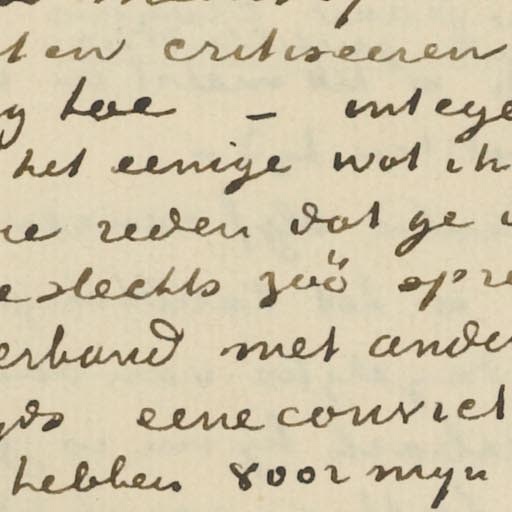 ten critiseeren
hoe – intege
het eenige wat ik
reden dat ge
slechts zóó spre
erband met ande
eene convict
hebben voor myn